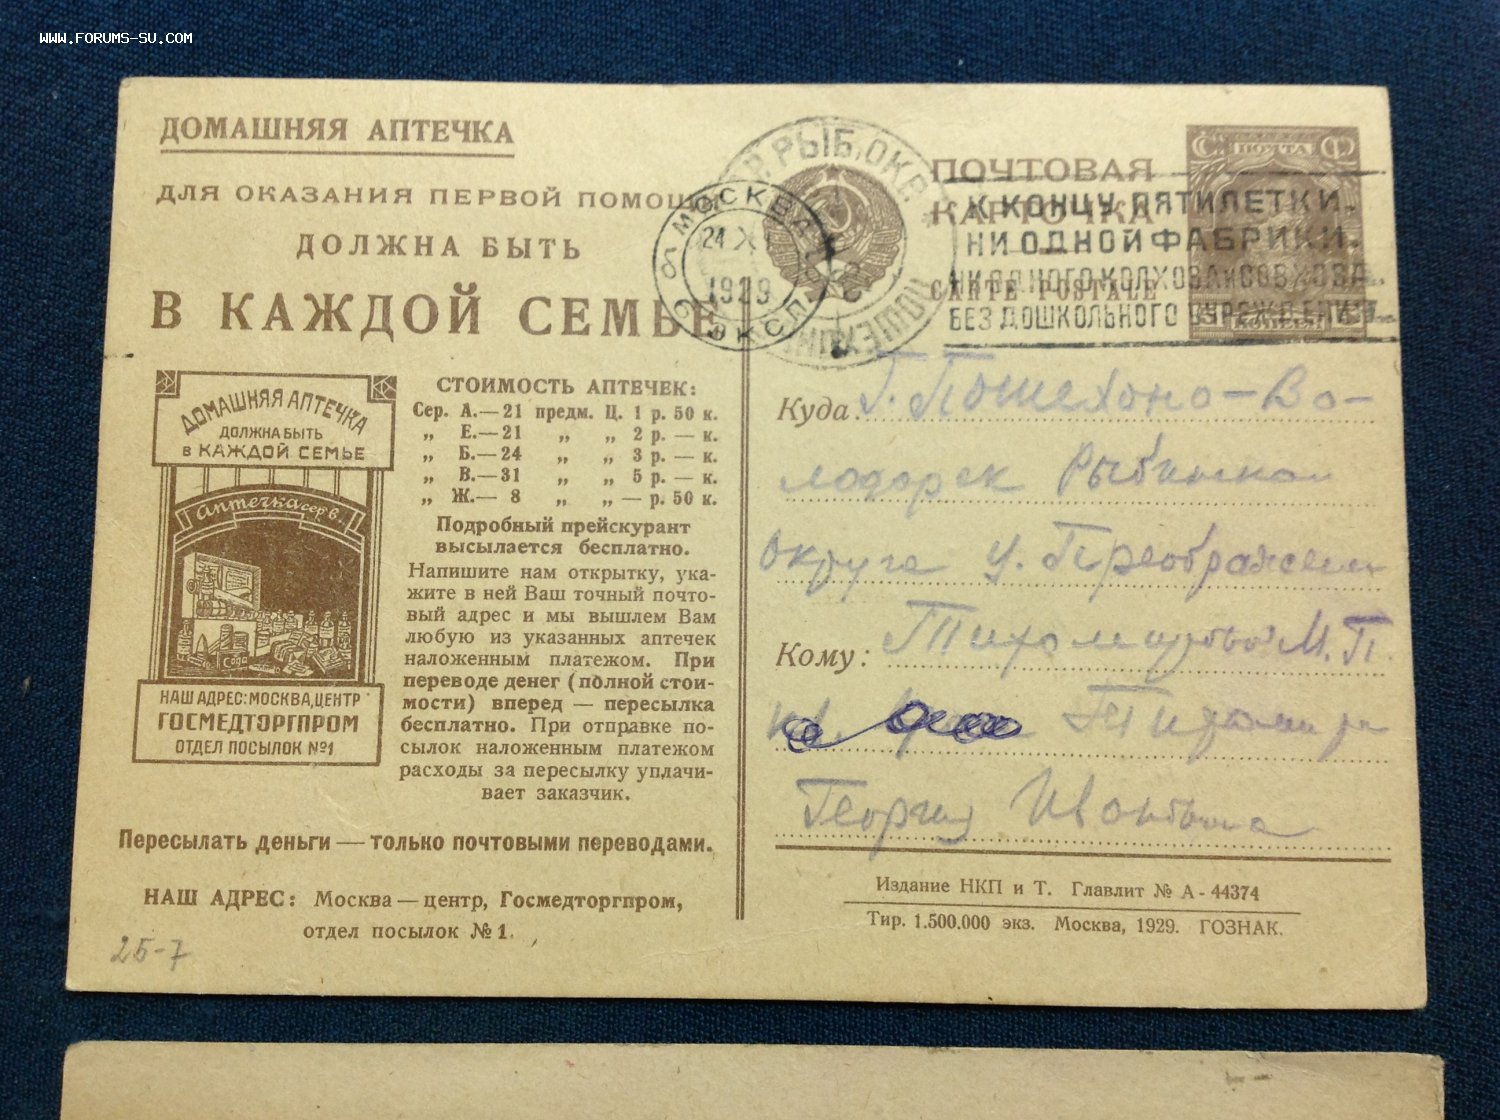 WWW.FORUMS-SU.COM
ДОМАШНЯЯ АПТЕЧКА
ДЛЯ ОКАЗАНИЯ ПЕРВОЙ ПОМОЩИ
ДОЛЖНА БЫТЬ
В КАЖДОЙ СЕМЬЕ
ДОМАШНЯЯ АПТЕЧКА
ДОЛЖНА БЫТЬ
В КАЖДОЙ СЕМЬЕ
Аптечка сер в.
Сода
НАШ АДРЕС: МОСКВА, ЦЕНТР
ГОСМЕДТОРГПРОМ
ОТДЕЛ ПОСЫЛОК №1
СТОИМОСТЬ АПТЕЧЕК:
Сер. А.—21 предм. Ц. 1 р. 50 к.
„ Е.—21 „ „ 2 р. — к.
„ Б.—24 „ „ 3 р. — к.
„ В.—31 „ „ 5 р. — к.
„ Ж.— 8 „ „ — р. 50 к.
Подробный прейскурант
высылается бесплатно.
Напишите нам открытку, ука-
жите в ней Ваш точный почто-
вый адрес и мы вышлем Вам
любую из указанных аптечек
наложенным платежом. При
переводе денег (полной стои-
мости) вперед — пересылка
бесплатно. При отправке по-
сылок наложенным платежом
расходы за пересылку уплачи-
вает заказчик.
Пересылать деньги — только почтовыми переводами.
НАШ АДРЕС: Москва — центр, Госмедторгпром,
отдел посылок № 1.
25-7
РЫБ. ОКР.
МОСКВА
24 XI
1929
ЭКСП.
ПОЧТОВАЯ
КАРТОЧКА
CARTE POSTALE
ПОЧТА
К КОНЦУ ПЯТИЛЕТКИ.
НИ ОДНОЙ ФАБРИКИ.
НИ ОДНОГО КОЛХОЗА И СОВХОЗА
БЕЗ ДОШКОЛЬНОГО УЧРЕЖДЕНИЯ
Куда: г. Пошехоно-Во-
лодарск Рыбинског
Округа у. Преображен
Кому: Тихомировой М. П.
Тихомиро
Георгия Ивановича
Издание НКП и Т. Главлит № А - 44374
Тир. 1.500.000 экз. Москва, 1929. ГОЗНАК.